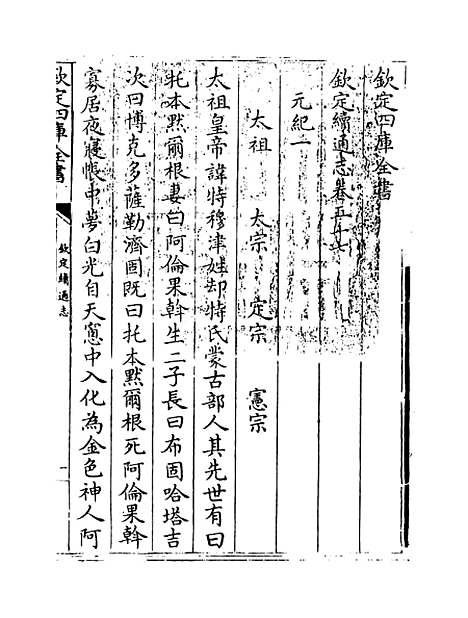 欽定四庫全書
欽定續通志卷五十七
元紀一
太祖 太宗 定宗 憲宗
太祖皇帝諱特穆津姓却特氏蒙古部人其先世有曰
托本默爾根妻曰阿倫果斡生二子長曰布固哈塔吉
次曰博克多薩勒濟固既曰托本默爾根死阿倫果斡
寡居夜寢帳中夢白光自天窻中入化為金色神人阿
欽定四庫全書
欽定續通志
一